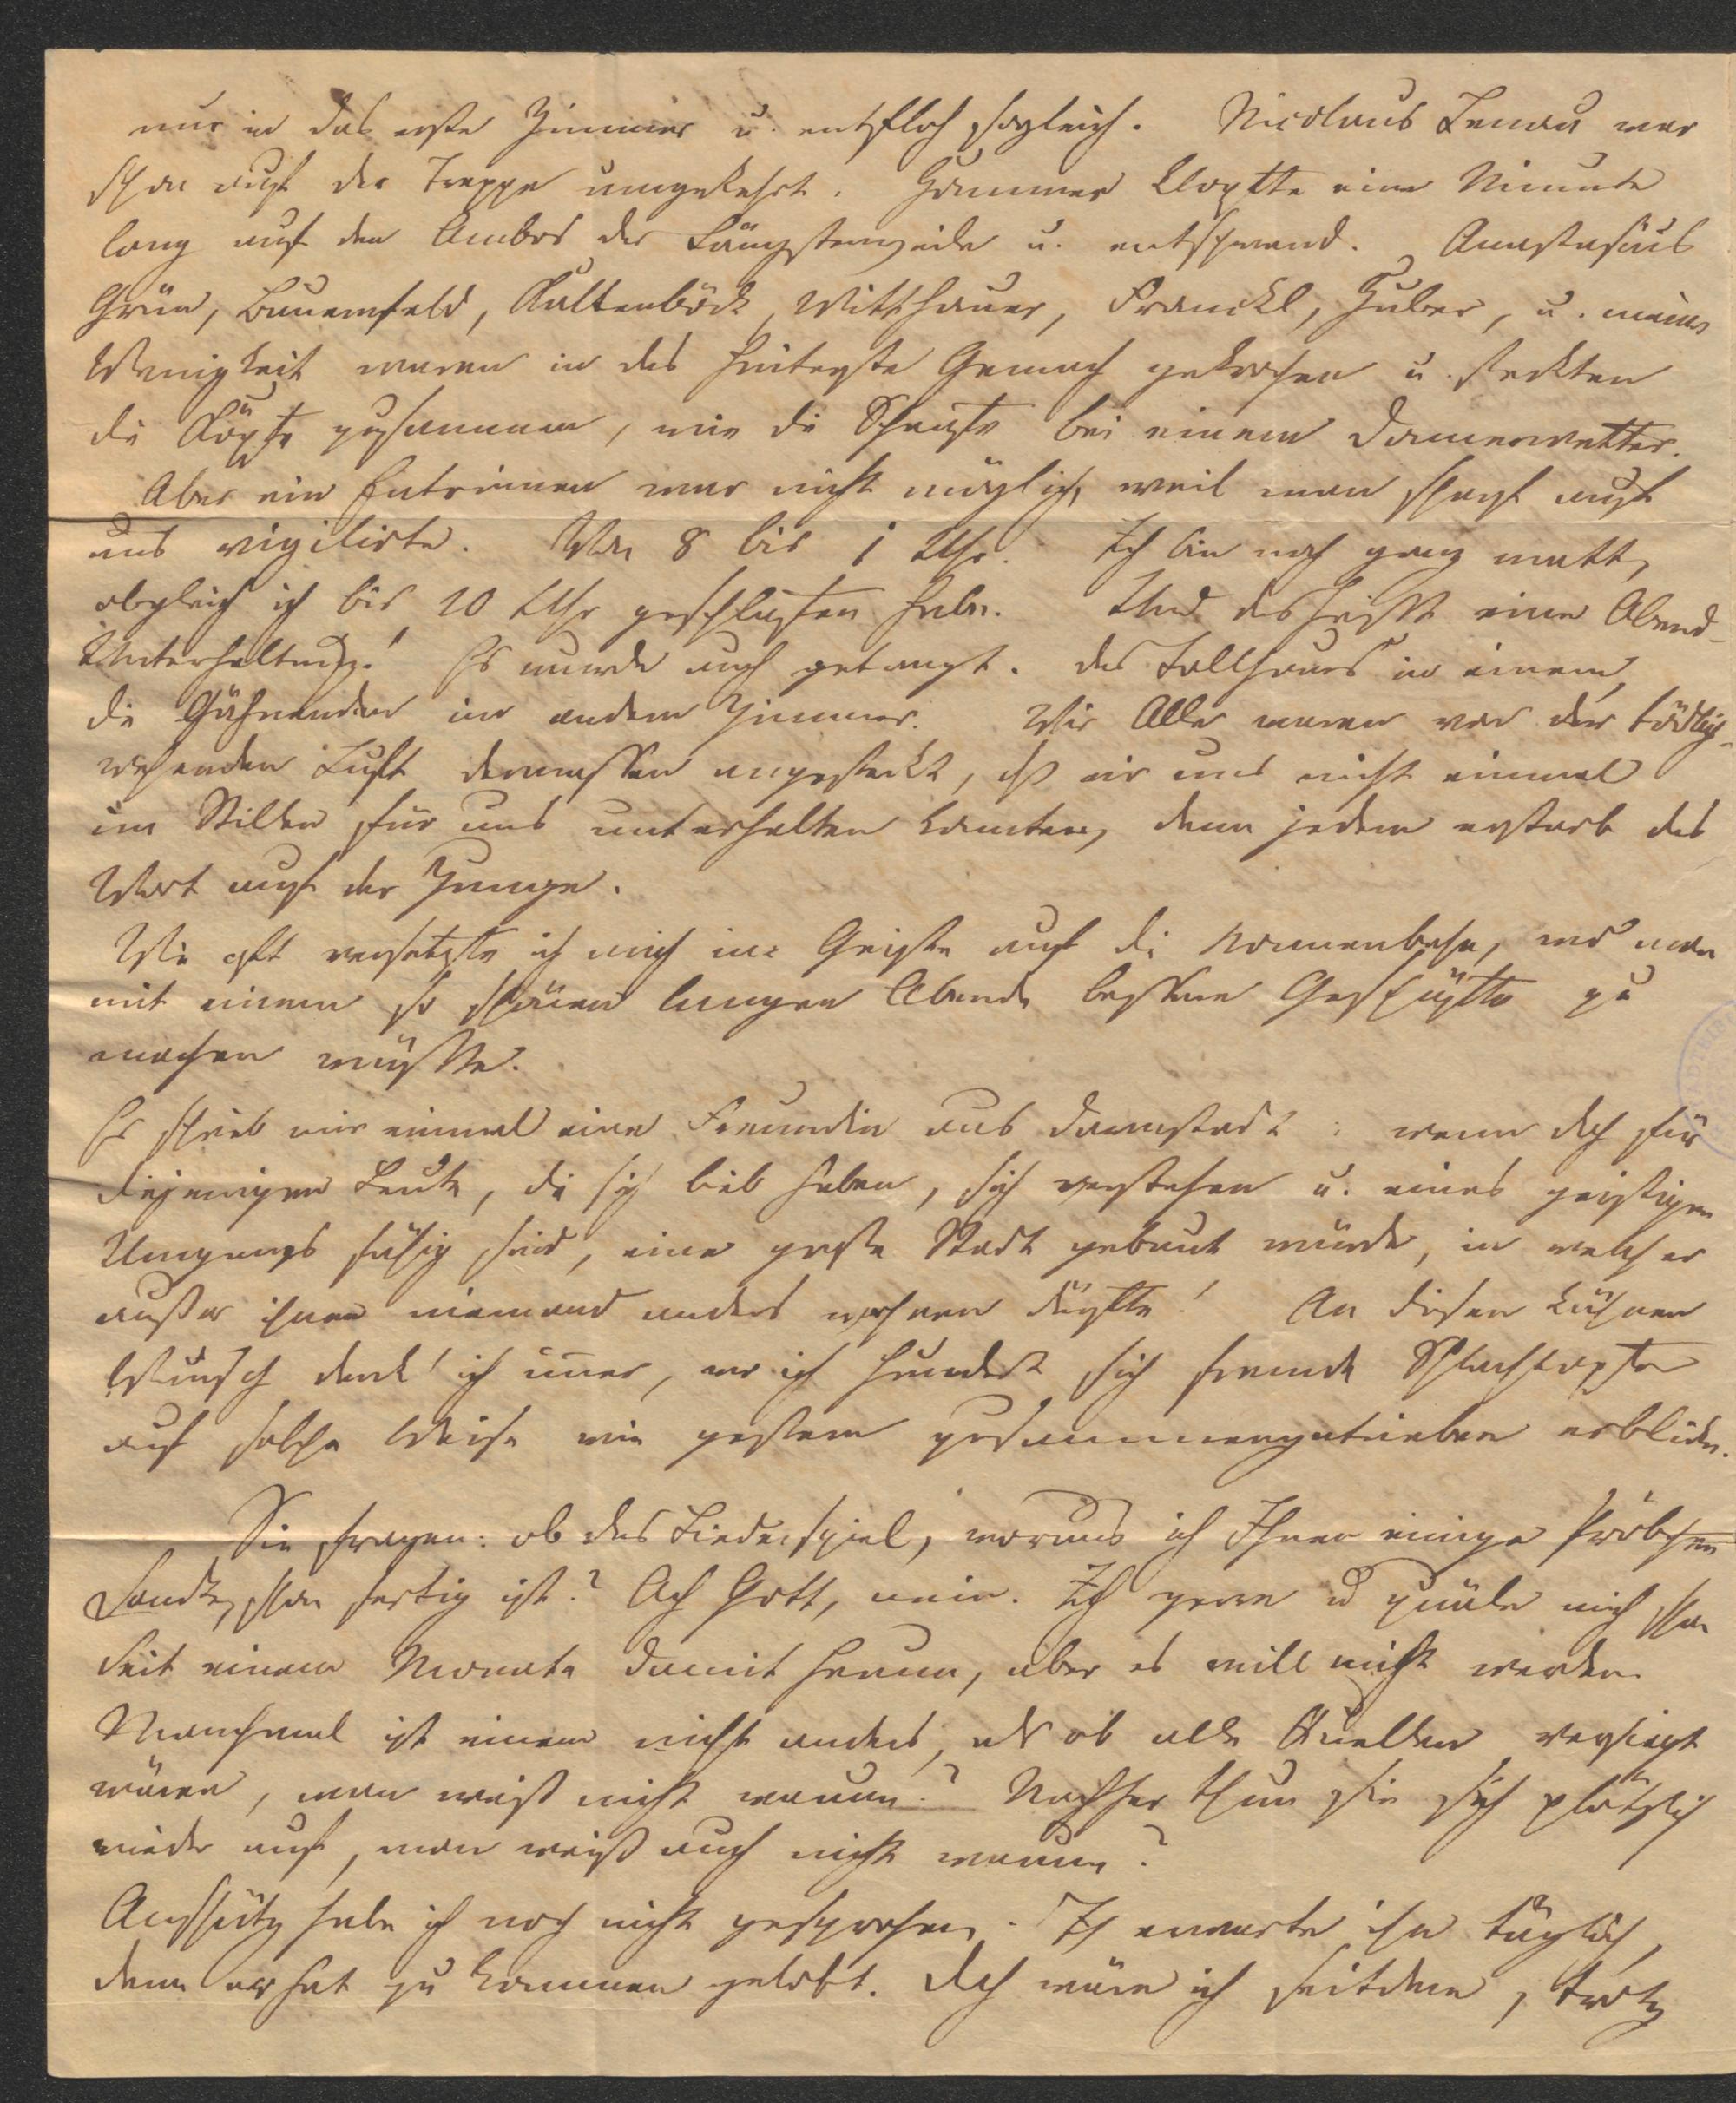 nur in das erste Zimmer u. entfloh sogleich. Nicolaus Lenau war
schon auf der Treppe umgekehrt. Hammer klopfte eine Minute
lang auf den Ambos der u. entschwand. Anastasius
Grün, Bauernfeld, Kaltenböck, Witthauer, Franckl, Huber, u. meine
Wenigkeit waren in das hinterste Gemach gekrochen u. steckten
die Köpfe zusammen, wie die Schaafe bei einem Donnerwetter.
Aber ein Entrinnen war nicht möglich, weil man scharf auf
uns vigilirte. Von 8 bis 1 Uhr. Ich bin noch ganz matt,
obgleich ich bis 10 Uhr geschlafen habe. Und das heißt eine Abend-
Unterhaltung! Es wurde auch getanzt. Das Tollhaus in einem,
die Gähnenden im andern Zimmer. Wir Alle waren von der tödlich
wehenden Luft dermassen angesteckt, dß wir uns nicht einmal
im Stillen für uns unterhalten konnten, denn jedem erstarb das
Wort auf der Zunge.
Wie oft versetzte ich mich im Geiste auf die, wo man
mit einem so schönen langen Abende bessere Geschäfte zu
machen wüßte.
Es schrieb mir einmal eine Freundin aus Darmstadt: wenn doch für
diejenigen Leute, die sich lieb haben, sich verstehen u. eines geistigen
Umgangs fähig sind, eine große Stadt gebaut würde, in welcher
außer ihnen niemand anders wohnen dürfte! An diesen kühnen
Wunsch denk' ich imer, wo ich hundert sich fremde Schlachtopfer
auf solche Weise wie gestern zusammengetrieben erblicke.
Sie fragen: ob das Liederspiel, woraus ich Ihnen einige Pröbchen
sandte, schon fertig ist? Ach Gott, nein. Ich zerre u quäle mich schon
seit einem Monate damit herum, aber es will nicht werden.
Manchmal ist einem nicht anders, als ob alle Quellen versiegt
wären, man weiß nicht warum? Nachher thun sie sich plötzlich
wieder auf, man weiß auch nicht warum?
Aufschütz habe ich noch nicht gesprochen. Ich erwarte ihn täglich,
denn er hat zu kommen gelobt. Doch wäre ich seitdem, trotz